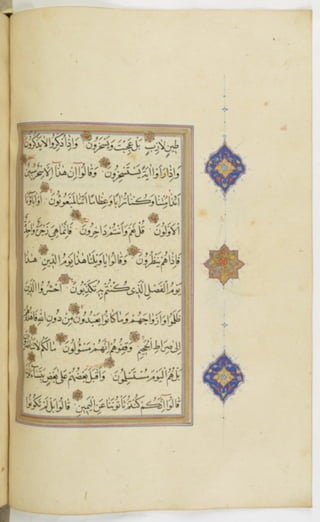 طين لازب بل عجبت ويسخرون واذا ذكروا لا يذكرون
واذا راوا اية يستسخرون وقالوا ان هذا الا سحر مبين
ائذا متنا وكنا ترابا وعظاما ائنا لمبعوثون اواباؤنا
الاولون قل نعم وانتم داخرون فانما هي زجرة واحدة
فاذا هم ينظرون وقالوا يا ويلنا هذا يوم الدين هذا
يوم الفصل الذي كنتم به تكذبون احشروا الذين
ظلموا وازواجهم وما كانوا يعبدون من دون الله فاهدوهم
الى صراط الجحيم وقفوهم انهم مسؤلون مالكم لا تناصرون
بل هم اليوم مستسلمون واقبل بعضهم على بعض يتساءلون
قالوا انكم كنتم تاتوننا عن اليمين قالوا بل لم تكونوا